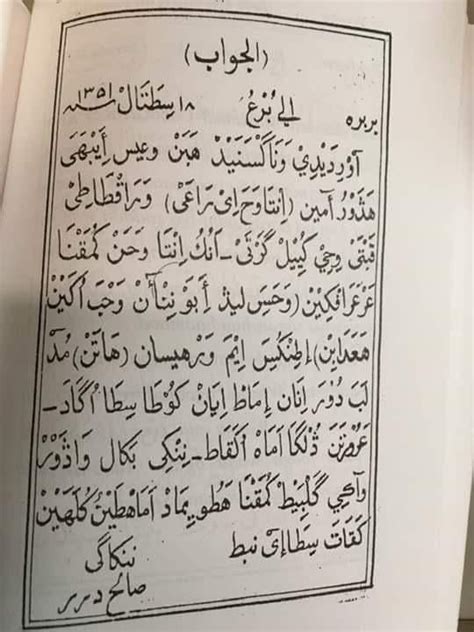 (الجواب)
بربره إلى بُرْعُ ١٨ سطتال سنة ١٣٥١
آوْرديدي وَنَاكْسَنَيْدْ هَبَنْ وعيس أَيْبَهَى
هَدَّوْرُ آمين (إنتاوَحَ اى رَاعَى) وَرَاقْطَاطِى
قَبْتَى وِحِيْ كَيِيلْ گَرْتَى - آنُكْ إِنْتَا وَحَنْ كُمَقْنَا
عَرْعَرَافكَيْنْ (وَحَسِ ليدْ أَبوُ نِنْأنْ وَحَبَ اكَيْنْ
هَعَدَابِنْ) إطِنكَيْسْ اِيْمَ وَرْهيسان (هَاتَنْ) مُدْ
لَبَ دَوْرَ اِنَان اِمَاطْ اِيَانْ كَوْطَا سِطَا اُگَادَ -
عَرْضَنَ دُلْگَا اَمَاهْ اَلْقَاطْ - نِنْكِى بَكَالْ وَادْوَوْرْ
وَآكِي گَلْبِيْطْ كُمَقْنَا هَطوُيمَادْ اَمَاهَطَيْنْ كُلَهَيْنْ
كَقَاتَ سِطَااِىْ نبط
ننكاگي
صالح دربر